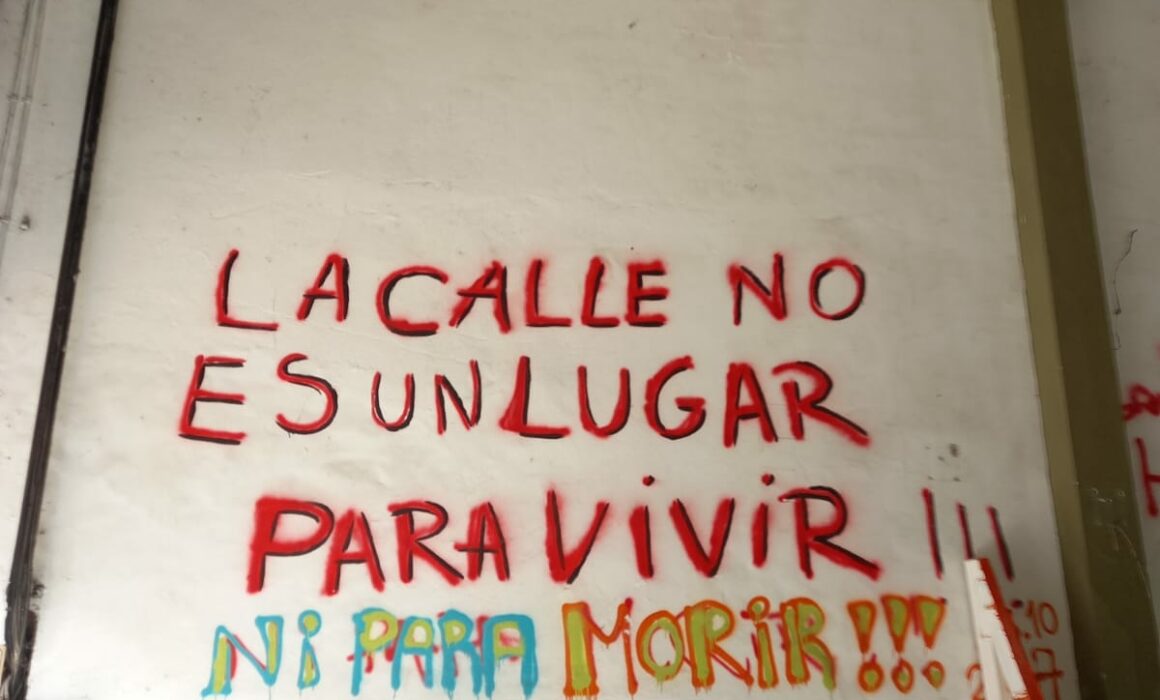 LA CALLE NO
ES UN LUGAR
PARA ViViR !!!
Ni PARA MORiR !!!